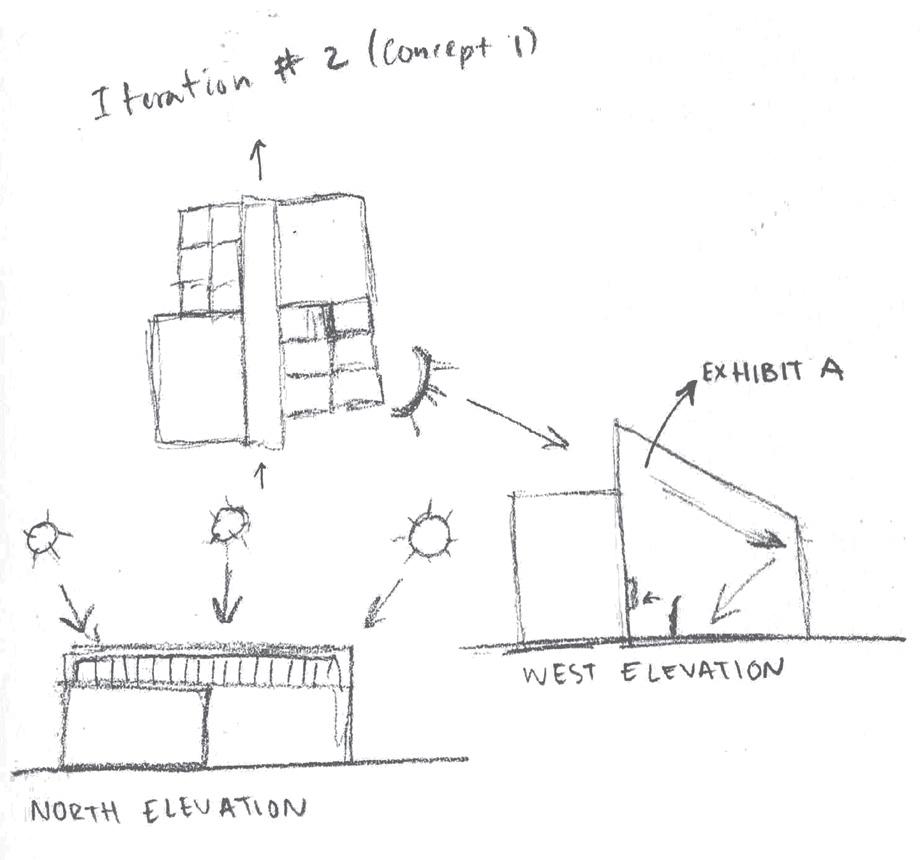 Iteration # 2 (Concept 1)
EXHIBIT A
WEST ELEVATION
NORTH ELEVATION